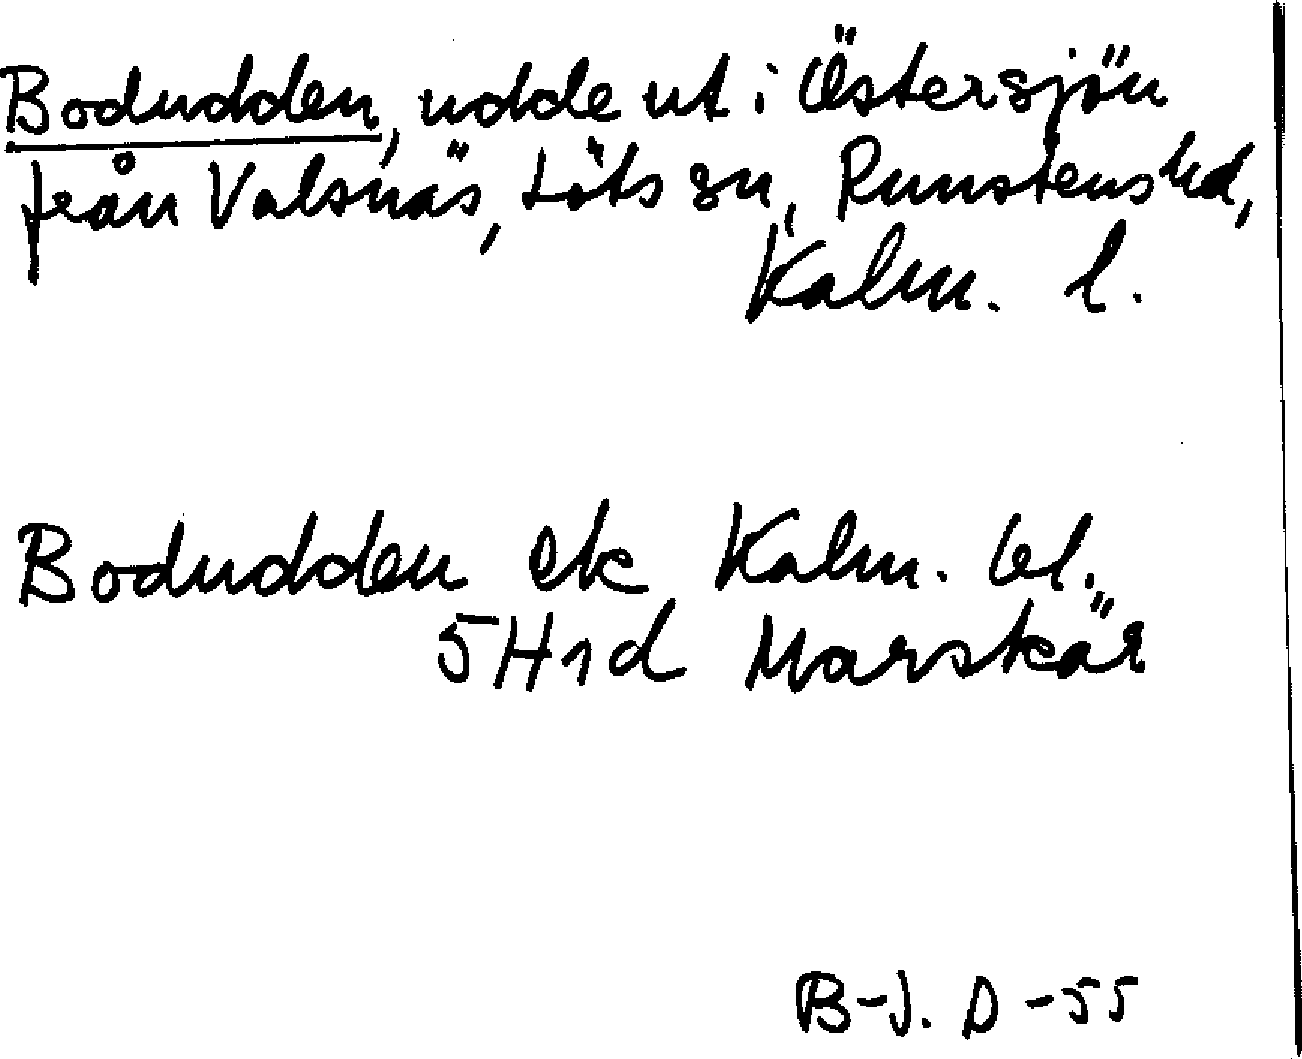 Bodudden, udde ut i Östersjön
från Valsnäs, Löts sn, Runstens hd,
Kalm. l.
Bodudden ek Kalm. bl.
5H1d Marskär
B-J. D -55